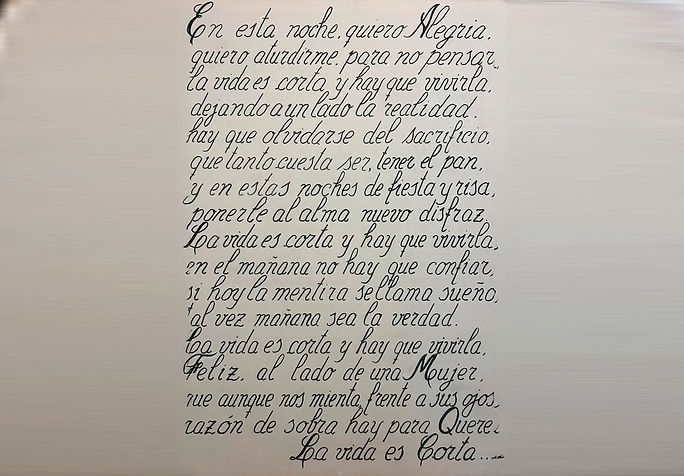 En esta noche, quiero Alegria,
quiero aturdirme, para no pensar,
la vida es corta y hay que vivirla,
dejando a un lado la realidad.
hay que olvidarse del sacrificio,
que tanto cuesta ser, tener el pan,
y en estas noches de fiesta y risa,
ponerle al alma nuevo disfraz.
La vida es corta y hay que vivirla,
en el mañana no hay que confiar,
si hoy la mentira se llama sueño,
tal vez mañana sea la verdad.
La vida es corta y hay que vivirla,
Feliz, al lado de una Mujer,
aunque nos mienta, frente a sus ojos,
razón de sobra hay para
La vida es Corta...